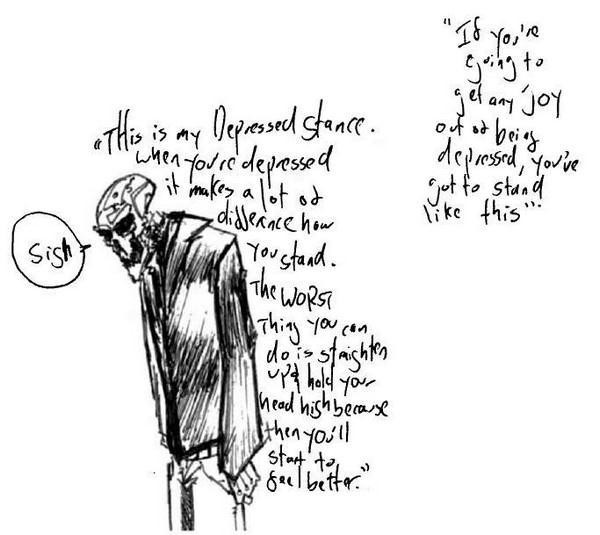 "This is my Depressed stance.
when you're depressed
it makes a lot of
differnce how
you stand.
The WORST
Thing you can
do is straighten
up & hold your
head high because
then you'll
start to
feel better."
"If you're
going to
get any joy
out of being
depressed, you've
got to stand
like this"
Sigh